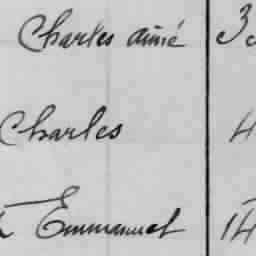 Charles aimé 3
Charles 4
Emmanuel 14